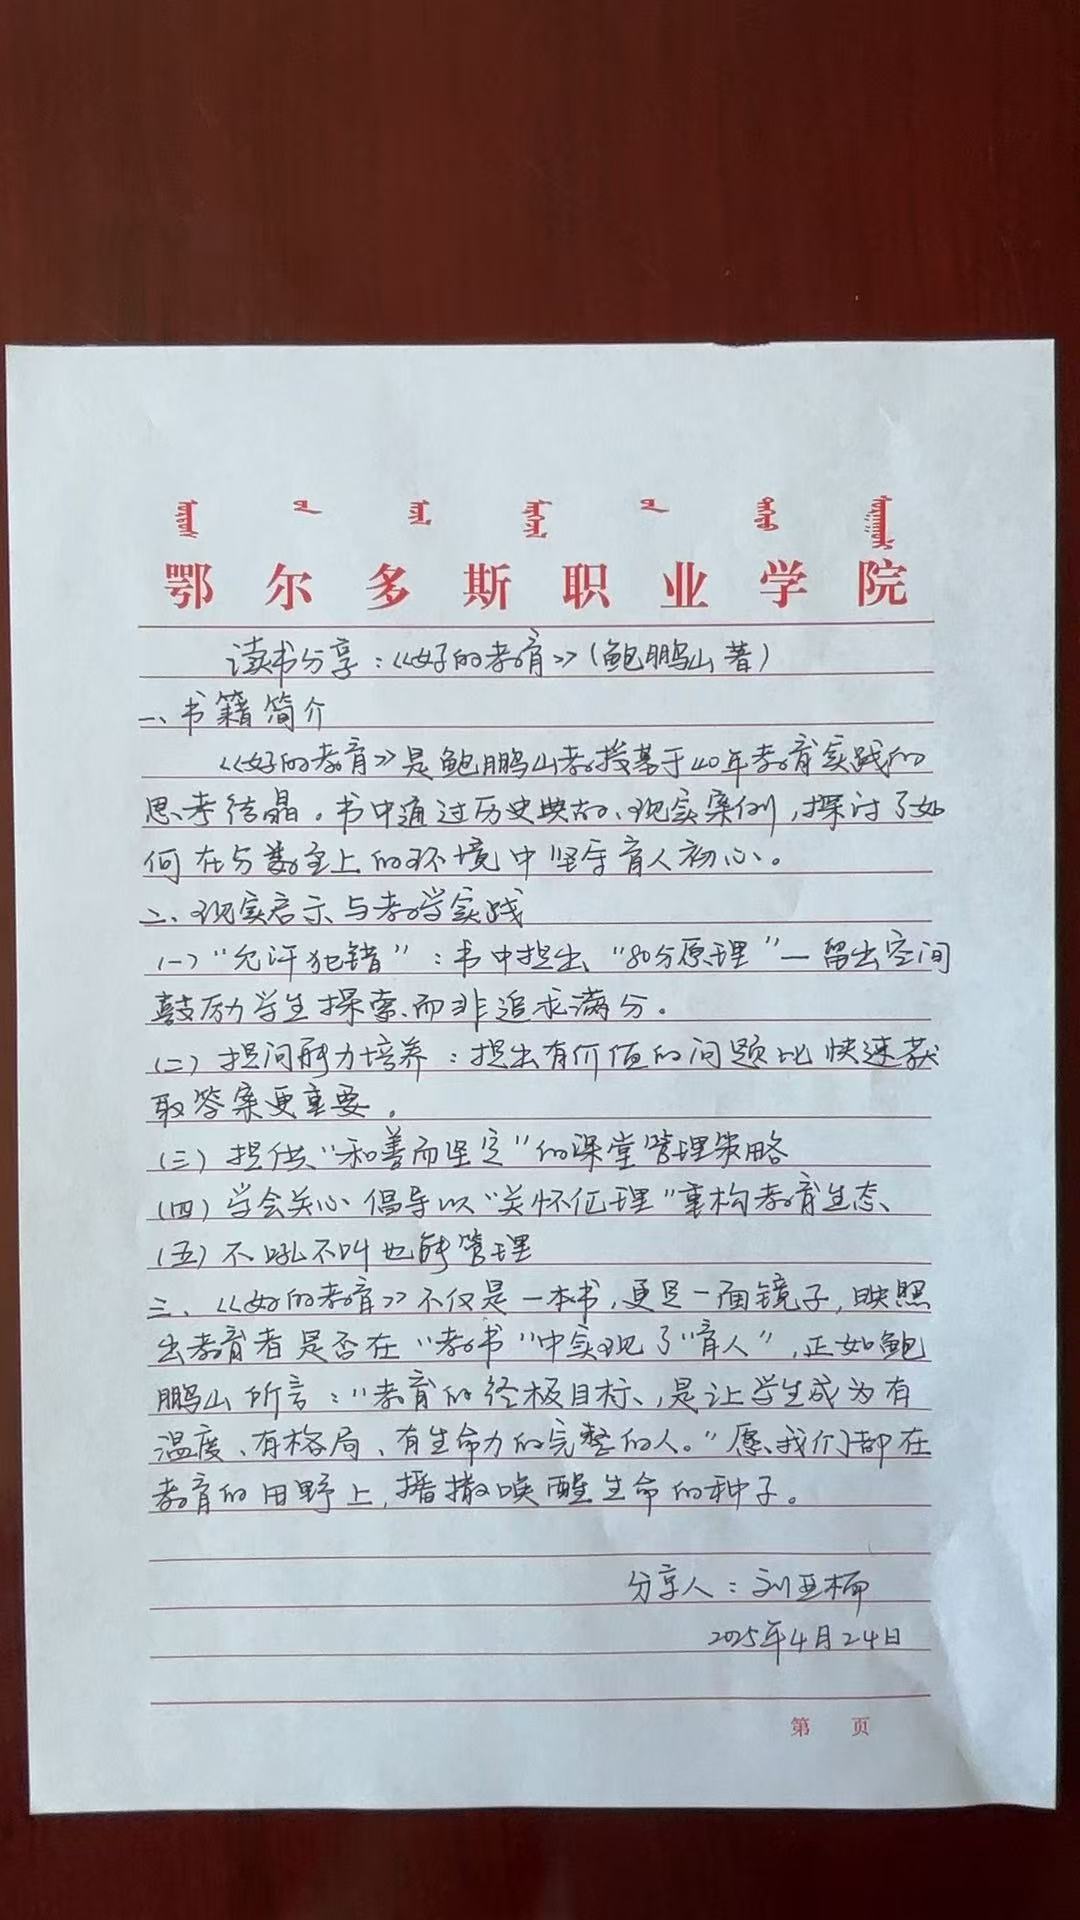 鄂尔多斯职业学院
读书分享：《好的教育》（鲍鹏山著）
一、书籍简介
《好的教育》是鲍鹏山教授基于40年教育实践的
思考结晶。书中通过历史典故、现实案例，探讨了如
何在分数至上的环境中坚守育人初心。
二、现实启示与教学实践
（一）“允许犯错”：书中提出“80分原理”—留出空间
鼓励学生探索、而非追求满分。
（二）提问能力培养：提出有价值的问题比快速获
取答案更重要。
（三）提供“和善而坚定”的课堂管理策略
（四）学会关心 倡导以“关怀伦理”重构教育生态
（五）不吼不叫也能管理
三、《好的教育》不仅是一本书，更是一面镜子，映照
出教育者是否在“教书”中实现了“育人”，正如鲍
鹏山所言：“教育的终极目标，是让学生成为有
温度、有格局、有生命力的完整的人。”愿我们都在
教育的田野上，播撒唤醒生命的种子。
分享人：刘亚楠
2025年4月24日
第 页